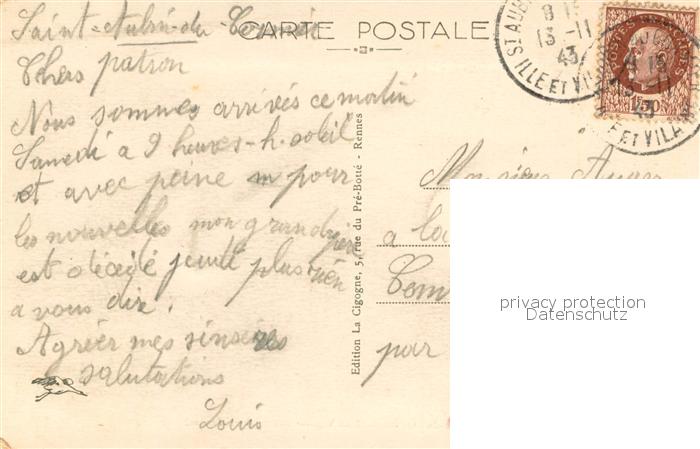 CARTE POSTALE
Saint-Aubin-du-Cormier
Chers patron
Nous sommes arrivés ce matin
Samedi a 9 heures-h. soleil
et avec peine pour
les nouvelles mon grand père
est décédé plus rien
a vous dire.
Agréer mes sinseres
salutations
Louis
Edition La Cigogne, 5, rue du Pré-Botté - Rennes
Monsieur
a
par
ST AUB
8 15
13 -11
43
ILLE ET VIL
POSTES FRANÇAISES
1F50
13 -11
43
E ET VILA
privacy protection
Datenschutz